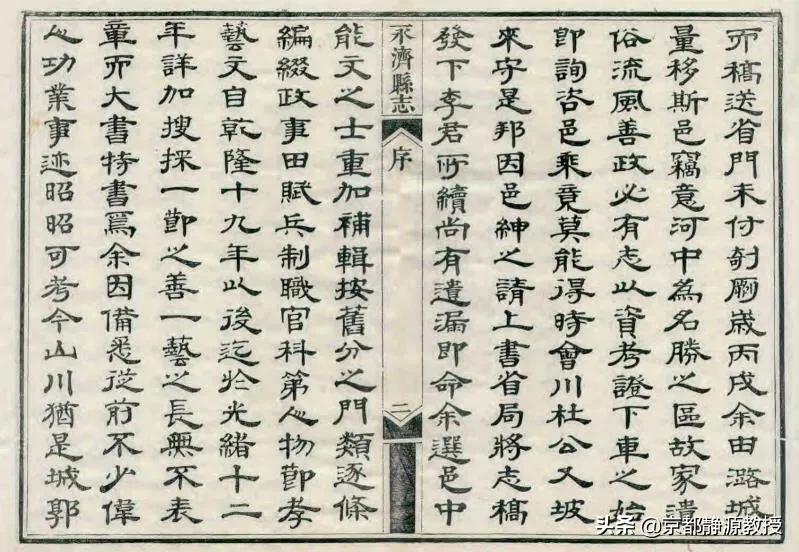 而稿送省門未付剞劂歲丙戌余由潞城
量移斯邑竊意河中為名勝之區故家遺
俗流風善政必有志以資考證下車之始
即詢咨邑乘竟莫能得時會川杜公又坡
來守是邦因邑紳之請上書省局將志稿
發下李君所續尚有遺漏即命余選邑中
永濟縣志
序
二
能文之士重加補輯按舊分之門類逐條
編綴政事田賦兵制職官科第人物節孝
藝文自乾隆十九年以後迄於光緒十二
年詳加搜採一節之善一藝之長無不表
章而大書特書焉余因備悉從前不少偉
人功業事迹昭昭可考今山川猶是城郭
头条 @京都静源教授